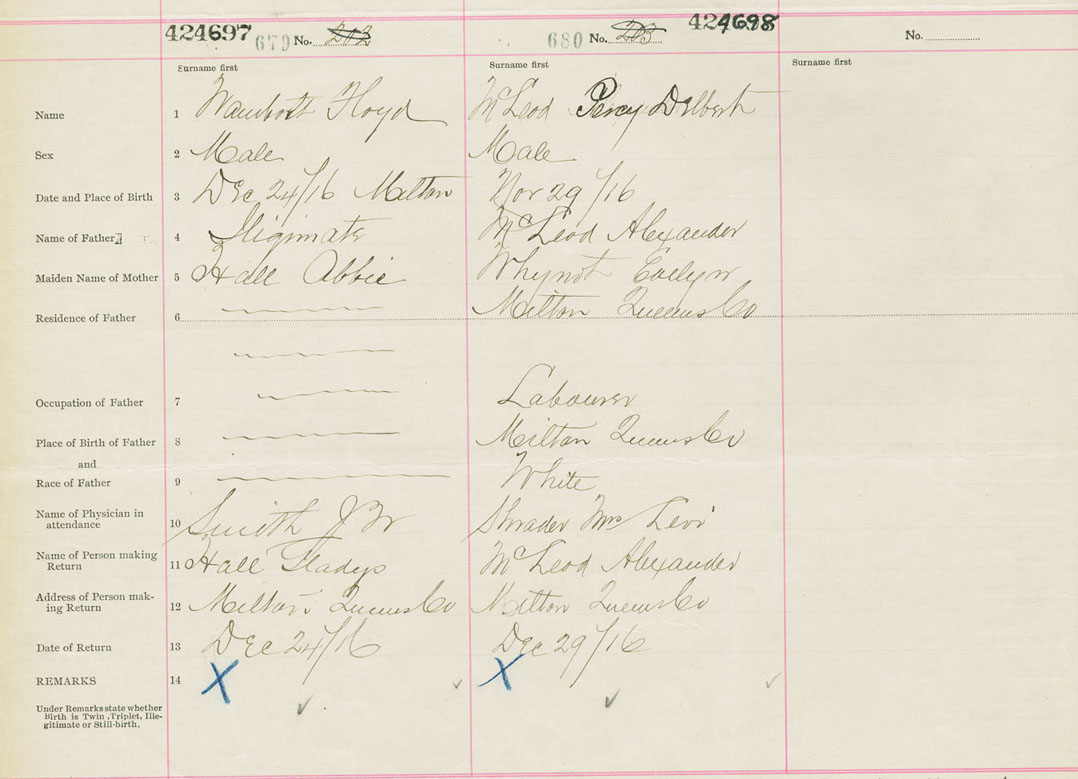 424697 679 No. 202 680 No. 203 424698 No.
Surname first Surname first Surname first
Name 1 Floyd McLeod Percy Delbert
Sex 2 Male Male
Date and Place of Birth 3 Dec 24/16 Milton Nov 29/16
Name of Father 4 McLeod Alexander
Maiden Name of Mother 5 Hall Abbie Whynot Evelyn
Residence of Father 6 Milton Queens Co
Occupation of Father 7 Labourer
Place of Birth of Father 8 Milton Queens Co
and
Race of Father 9 White
Name of Physician in
attendance 10 Smith J W Shrader Mrs Levi
Name of Person making
Return 11 Hall Gladys McLeod Alexander
Address of Person mak-
ing Return 12 Milton Queens Co Milton Queens Co
Date of Return 13 Dec 24/16 Dec 29/16
REMARKS 14 X X
Under Remarks state whether
Birth is Twin, Triplet, Ille-
gitimate or Still-birth.